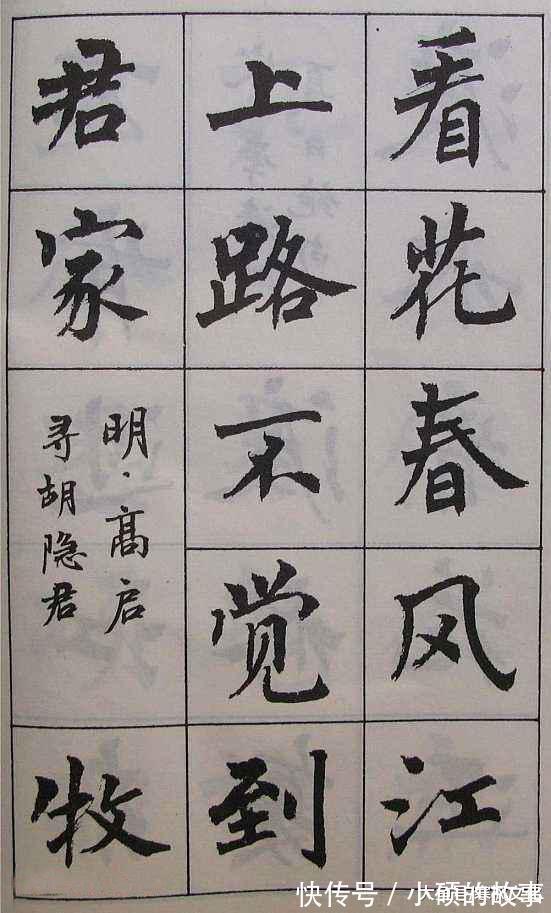 看花春风江
上路不觉到
君家
明·高启
寻胡隐君
牧
快传号/小硕的故事